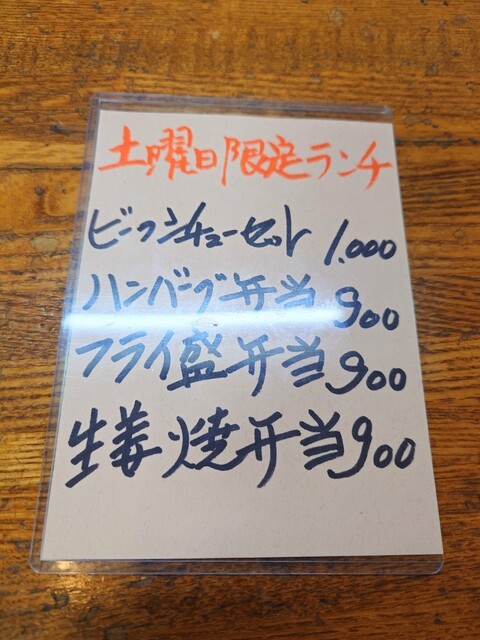 土曜日限定ランチ
ビーフシチューセット 1.000
ハンバーグ弁当 900
フライ盛弁当 900
生姜焼弁当 900